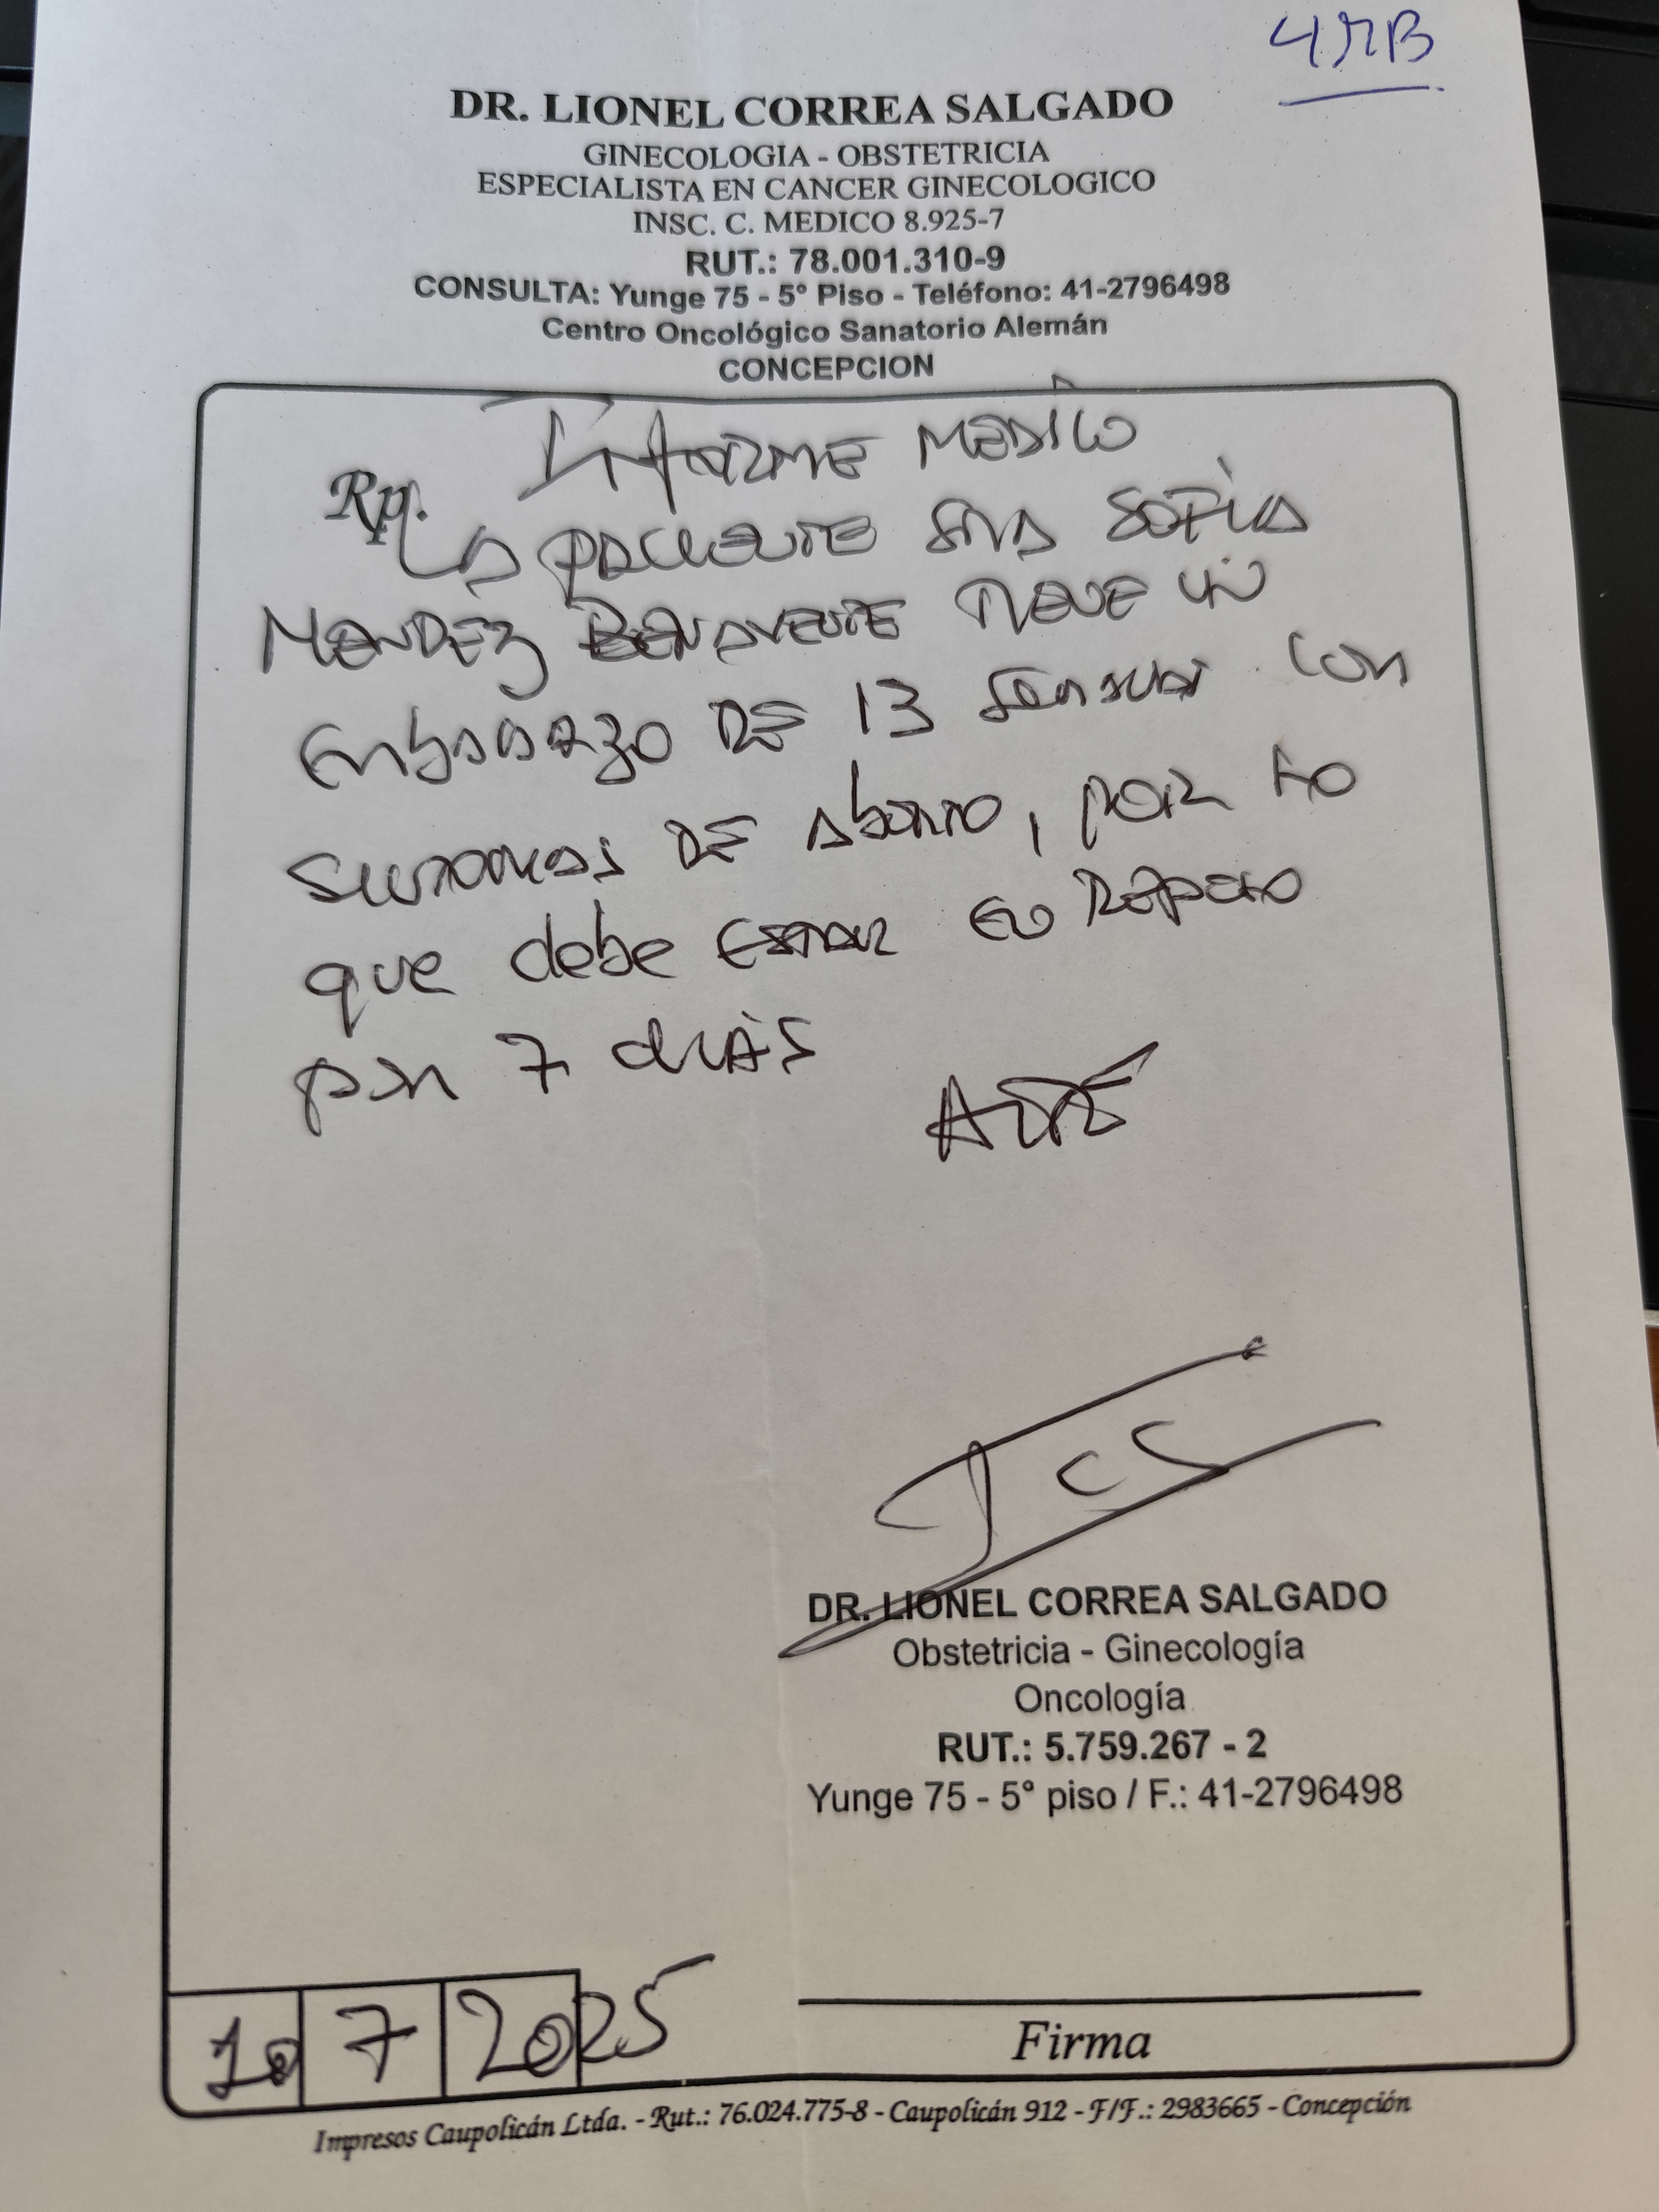 4MB
DR. LIONEL CORREA SALGADO
GINECOLOGIA - OBSTETRICIA
ESPECIALISTA EN CANCER GINECOLOGICO
INSC. C. MEDICO 8.925-7
RUT.: 78.001.310-9
CONSULTA: Yunge 75 - 5° Piso - Teléfono: 41-2796498
Centro Oncológico Sanatorio Alemán
CONCEPCION
INFORME MEDICO
Rp. LA PACIENTE SRA SOFIA
MENDEZ BENAVENTE TIENE UN
EMBARAZO DE 13 SEMANAS CON
SINTOMAS DE ABORTO, POR LO
que debe ESTAR EN REPOSO
por 7 díAS
DR. LIONEL CORREA SALGADO
Obstetricia - Ginecología
Oncología
RUT.: 5.759.267 - 2
Yunge 75 - 5° piso / F.: 41-2796498
10 7 2025
Firma
Impresos Caupolicán Ltda. - Rut.: 76.024.775-8 - Caupolicán 912 - F/F.: 2983665 - Concepción